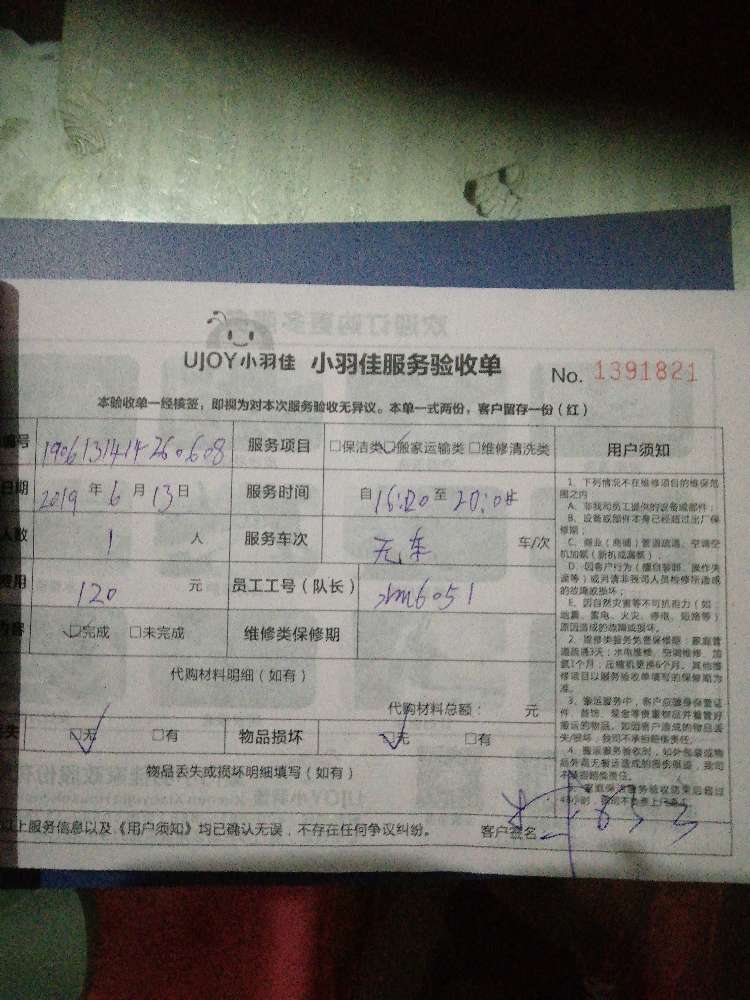 UJOY小羽佳 小羽佳服务验收单 No. 1391821
本验收单一经接签，即视为对本次服务验收无异议。本单一式两份，客户留存一份（红）
编号 服务项目 □保洁类 □搬家运输类 □维修清洗类 用户须知
日期 2019年6月13日 服务时间 自16:20至20:0
人数 1 人 服务车次 无车 车/次
费用 120 元 员工工号（队长） 6051
内容 □完成 □未完成 维修类保修期
代购材料明细（如有）
代购材料总额： 元
丢失 □无 □有 物品损坏 □无 □有
物品丢失或损坏明细填写（如有）
以上服务信息以及《用户须知》均已确认无误，不存在任何争议纠纷。 客户签名
1、下列情况不在维修项目的维保范
围之内
A、非我司员工提供的设备或部件；
B、设备或部件本身已经超过出厂保
修期；
C、商业（商铺）管道疏通、空调空
机加氟（新机或漏氟）；
D、因客户行为（擅自装卸、操作失
误等）或另请非我司人员检修所造成
的故障或损坏；
E、因自然灾害等不可抗拒力（如
地震、雷电、火灾、停电、短路等）
原因造成的故障或损坏。
2、维修类服务免费保修期：家庭管
道疏通3天；水电维修、空调维修、加
氟1个月；压缩机更换6个月。其他维
修项目以服务验收单填写的保修期为
准。
3、搬运服务中，客户应随身保管证
件、首饰、现金等贵重物品并看管好
搬运的物品。如因客户造成的物品丢
失/损坏，我司不承担赔偿责任。
4、搬运服务验收时，如外包装或物
品外观无搬运造成的损伤痕迹，我司
不承担赔偿责任。